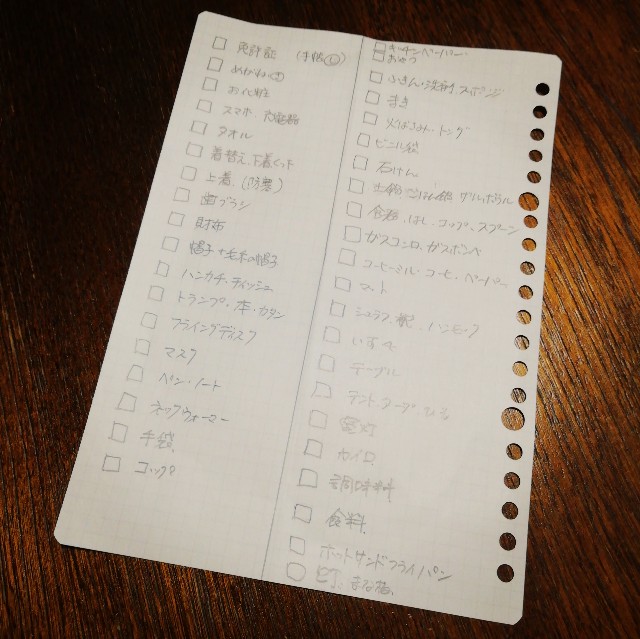 免許証 (手帳①)
めがね
お化粧
スマホ 充電器
タオル
着替え、下着セット
上着 (防寒)
歯ブラシ
財布
帽子+毛糸の帽子
ハンカチ・ティッシュ
トランプ・本・カタン
フライングディスク
マスク
ペン・ノート
ネックウォーマー
手袋、
コップ
キッチンペーパー
おやつ
ふきん・洗剤 スポンジ
まき
火ばさみ・トング
ビニル袋
石けん
土鍋、ごはん鍋
食器、はし、コップ、スプーン
ガスコンロ、ガスボンベ
コーヒーミル・コーヒー、ペーパー
マット
シュラフ、枕、ハンモック
いす
テーブル
テント タープ
電灯
カイロ
調味料
食料、
ホットサンドフライパン
包丁、まな板、